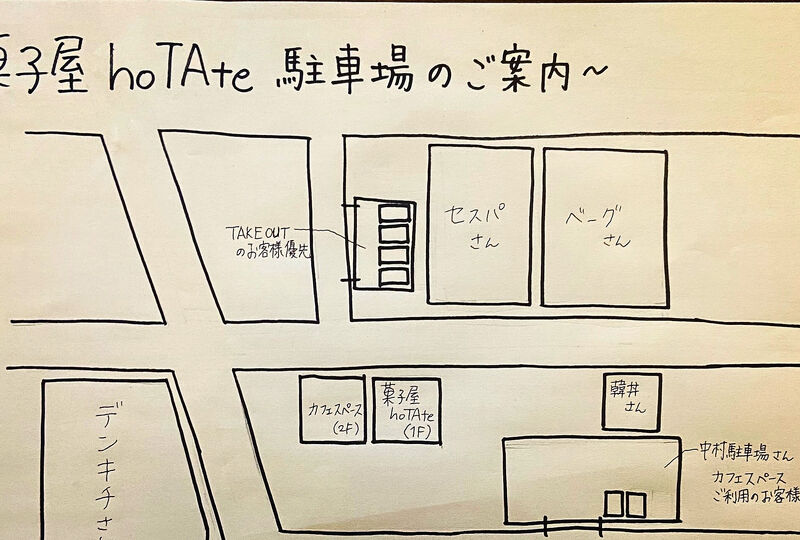 菓子屋 hoTAte 駐車場のご案内～
TAKEOUT
のお客様優先
セスパ
さん
ベーグ
さん
カフェスペース
(2F)
菓子屋
hoTAte
(1F)
韓丼
さん
デンキチさん
中村駐車場さん
カフェスペース
ご利用のお客様